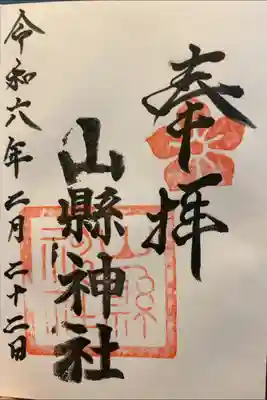 奉拝
山縣神社
令和六年二月二十二日